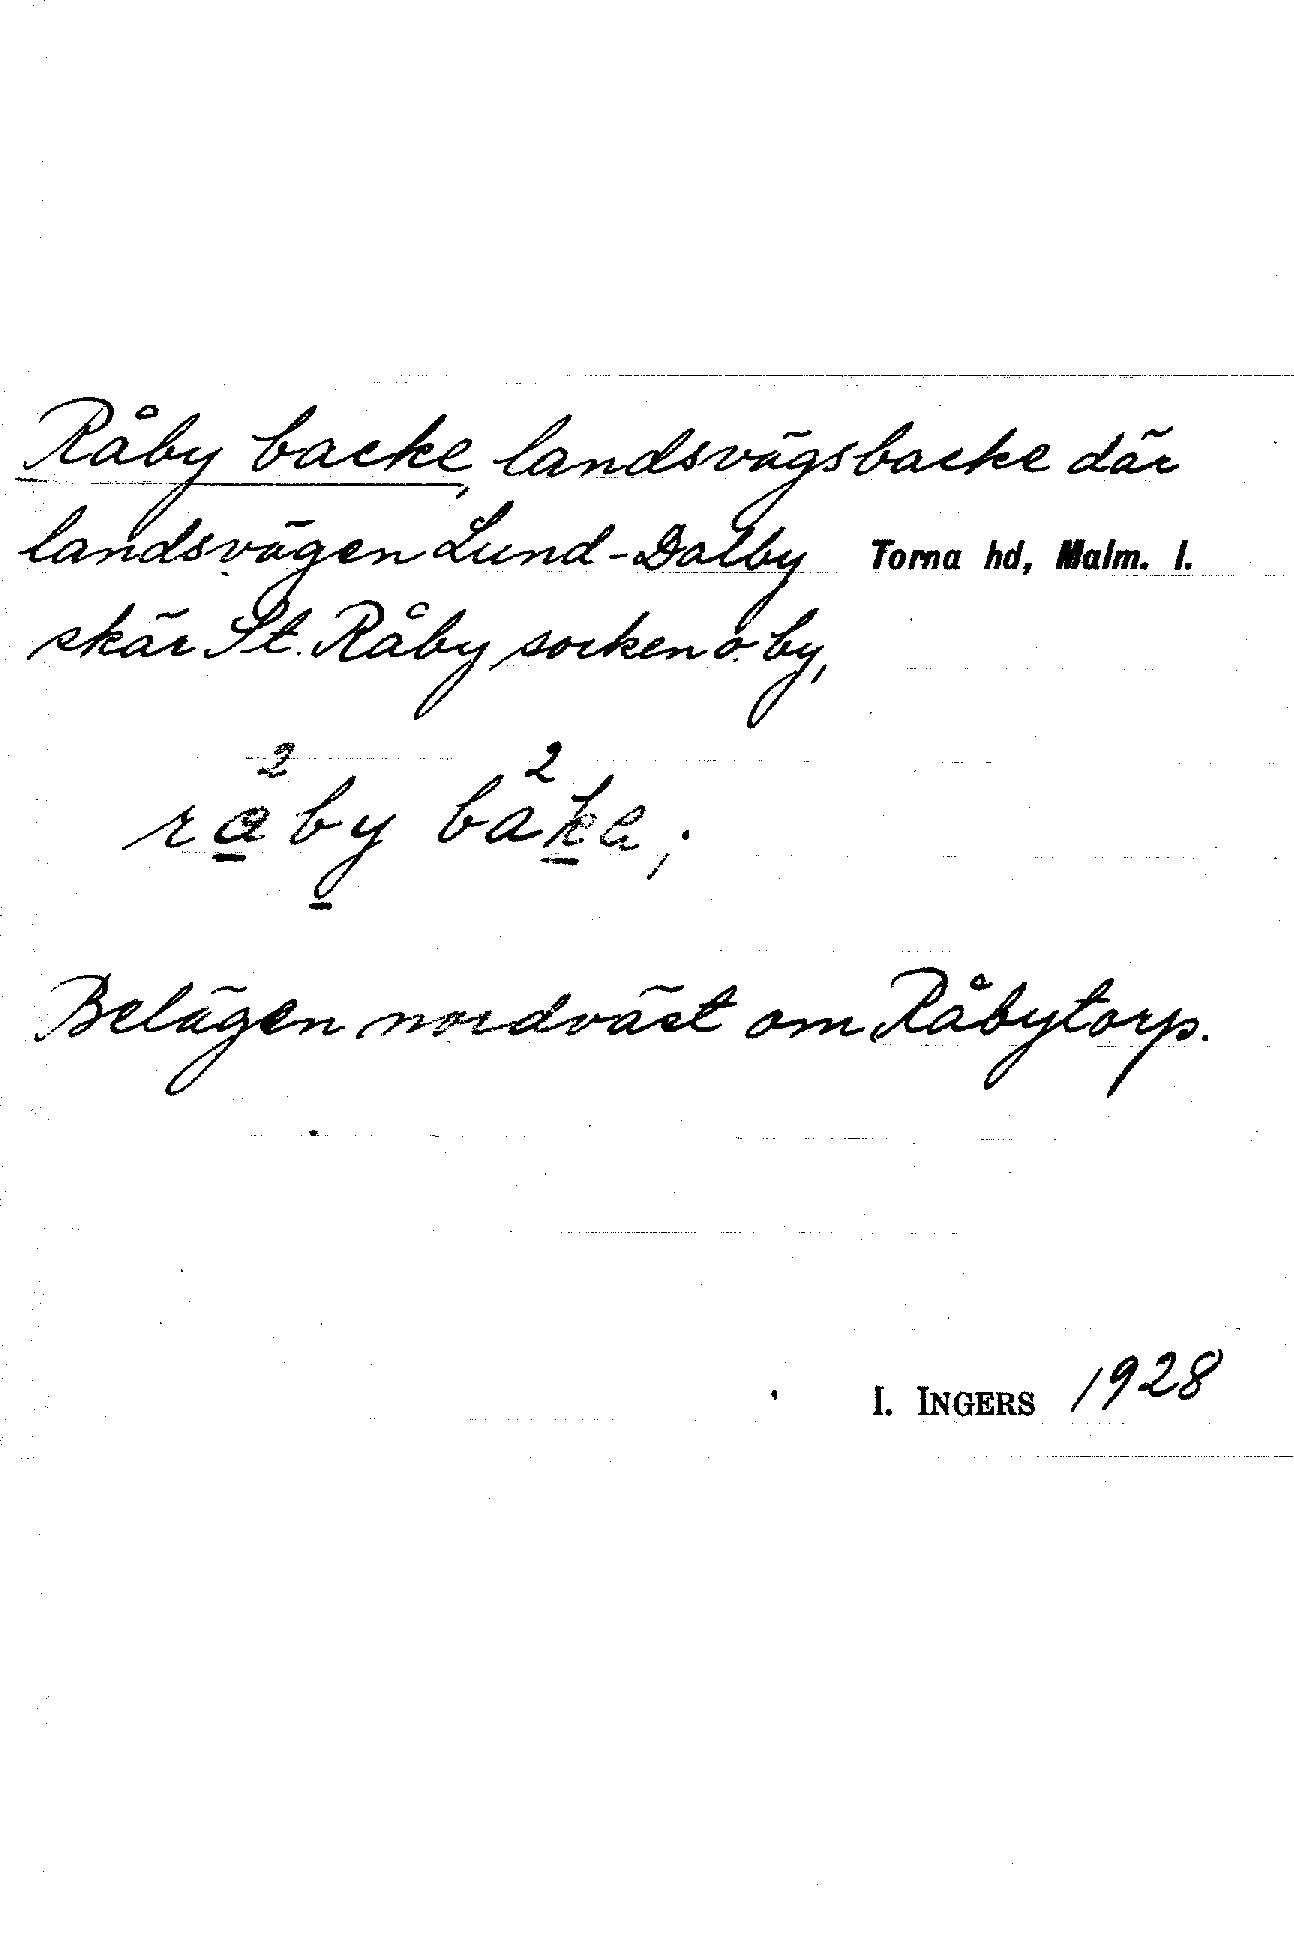 Råby backe, landsvägsbacke där
landsvägen Lund-Dalby Torna hd, Malm. l.
skär St. Råby socken o. by,
rα²by ba²ka,.
Belägen nordväst om Råbytorp.
I. INGERS 1928